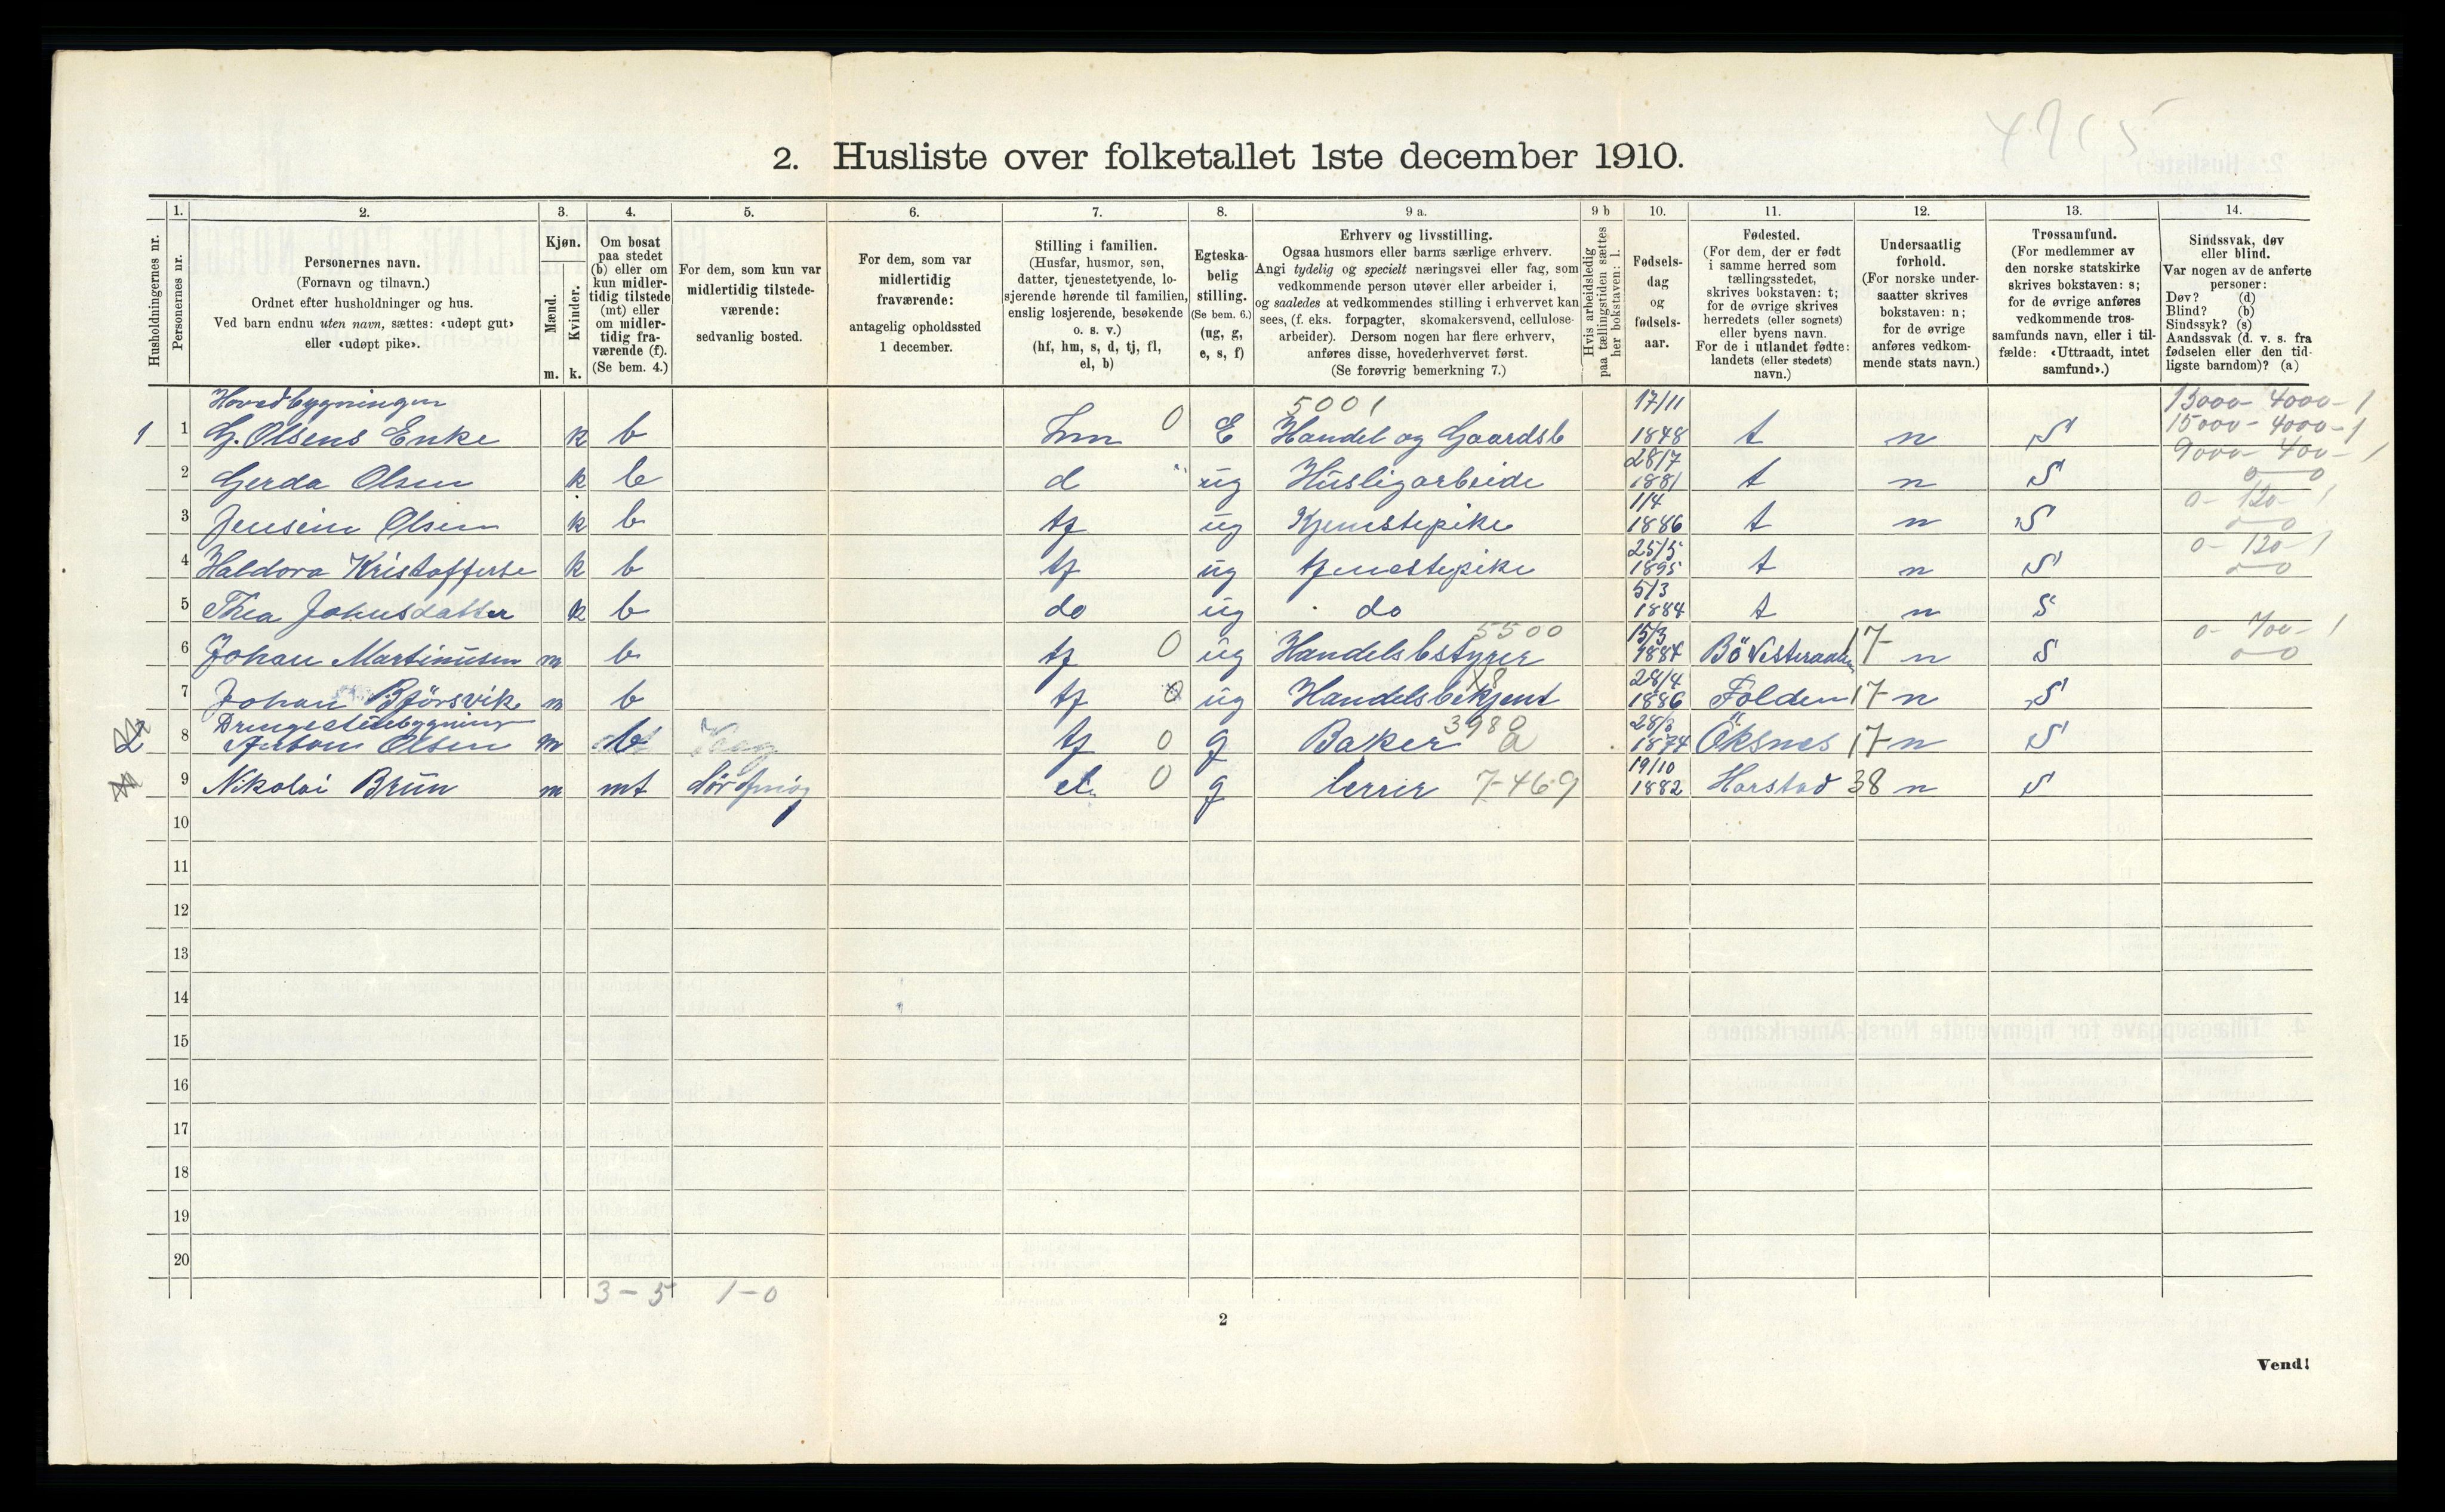 2. Husliste over folketallet 1ste december 1910.
Husholdningernes nr.
1.
Personernes nr.
2.
Personernes navn.
(Fornavn og tilnavn.)
Ordnet efter husholdninger og hus.
Ved barn endnu uten navn, sættes: «udøpt gut»
eller «udøpt pike».
3.
Kjøn.
Mænd.
Kvinder.
m. k.
4.
Om bosat
paa stedet
(b) eller om
kun midler-
tidig tilstede
(mt) eller
om midler-
tidig fra-
værende (f).
(Se bem. 4.)
5.
For dem, som kun var
midlertidig tilstede-
værende:
sedvanlig bosted.
6.
For dem, som var
midlertidig
fraværende:
antagelig opholdssted
1 december.
7.
Stilling i familien.
(Husfar, husmor, søn,
datter, tjenestetyende, lo-
sjerende hørende til familien,
enslig losjerende, besøkende
o. s. v.)
(hf, hm, s, d, tj, fl,
el, b)
8.
Egteska-
belig
stilling.
(Se bem. 6.)
(ug, g,
e, s, f)
9 a.
Erhverv og livsstilling.
Ogsaa husmors eller barns særlige erhverv.
Angi tydelig og specielt næringsvei eller fag, som
vedkommende person utøver eller arbeider i,
og saaledes at vedkommendes stilling i erhvervet kan
sees, (f. eks. forpagter, skomakersvend, cellulose-
arbeider). Dersom nogen har flere erhverv,
anføres disse, hovederhvervet først.
(Se forøvrig bemerkning 7.)
9 b
Hvis arbeidsledig
paa tællingstiden sættes
her bokstaven: l.
10.
Fødsels-
dag
og
fødsels-
aar.
11.
Fødested.
(For dem, der er født
i samme herred som
tællingsstedet,
skrives bokstaven: t;
for de øvrige skrives
herredets (eller sognets)
eller byens navn.
For de i utlandet fødte:
landets (eller stedets)
navn.)
12.
Undersaatlig
forhold.
(For norske under-
saatter skrives
bokstaven: n;
for de øvrige
anføres vedkom-
mende stats navn.)
13.
Trossamfund.
(For medlemmer av
den norske statskirke
skrives bokstaven: s;
for de øvrige anføres
vedkommende tros-
samfunds navn, eller i til-
fælde: «Uttraadt, intet
samfund».)
14.
Sindssvak, døv
eller blind.
Var nogen av de anførte
personer:
Døv? (d)
Blind? (b)
Sindssyk? (s)
Aandssvak (d. v. s. fra
fødselen eller den tid-
ligste barndom)? (a)
Hovedbygningen 5001 17/11 15000- 4000- 1
1 1 G. Olsens Enke k b hm 0 E Handel og Gaardsb 1848 t n S 15000- 4000- 1
28/7 9000- 400- 1
2 Gerda Olsen k b d ug Husligarbeide 1881 t n S 0 0
1/4 0- 120- 1
3 Jensein Olsen k b tj ug Tjenestepike 1886 t n S 0 0
25/5 0- 120- 1
4 Haldora Kristofferse k b tj ug tjenestepike 1895 t n S 0 0
5/3
5 Thea Johnsdatter k b do ug do 1884 t n S
5500 15/3 0- 700- 1
6 Johan Martinusen m b tj 0 ug Handelsbstyrer 1884 Bö Vesteraalen 17 n S 0 0
28/4
7 Johan Björsvik m b tj 0 ug Handelsbetjent 1886 Folden 17 n S
Drengestuebygning 3980 28/8
2 8 Anton Olsen m b tj 0 g Baker a 1874 Öksnes 17 n S
19/10
9 Nikolai Brun m mt el 0 g lerrer 7-469 1882 Harstad 38 n S
10
11
12
13
14
15
16
17
18
19
20
3-5 1-0
2
Vend!